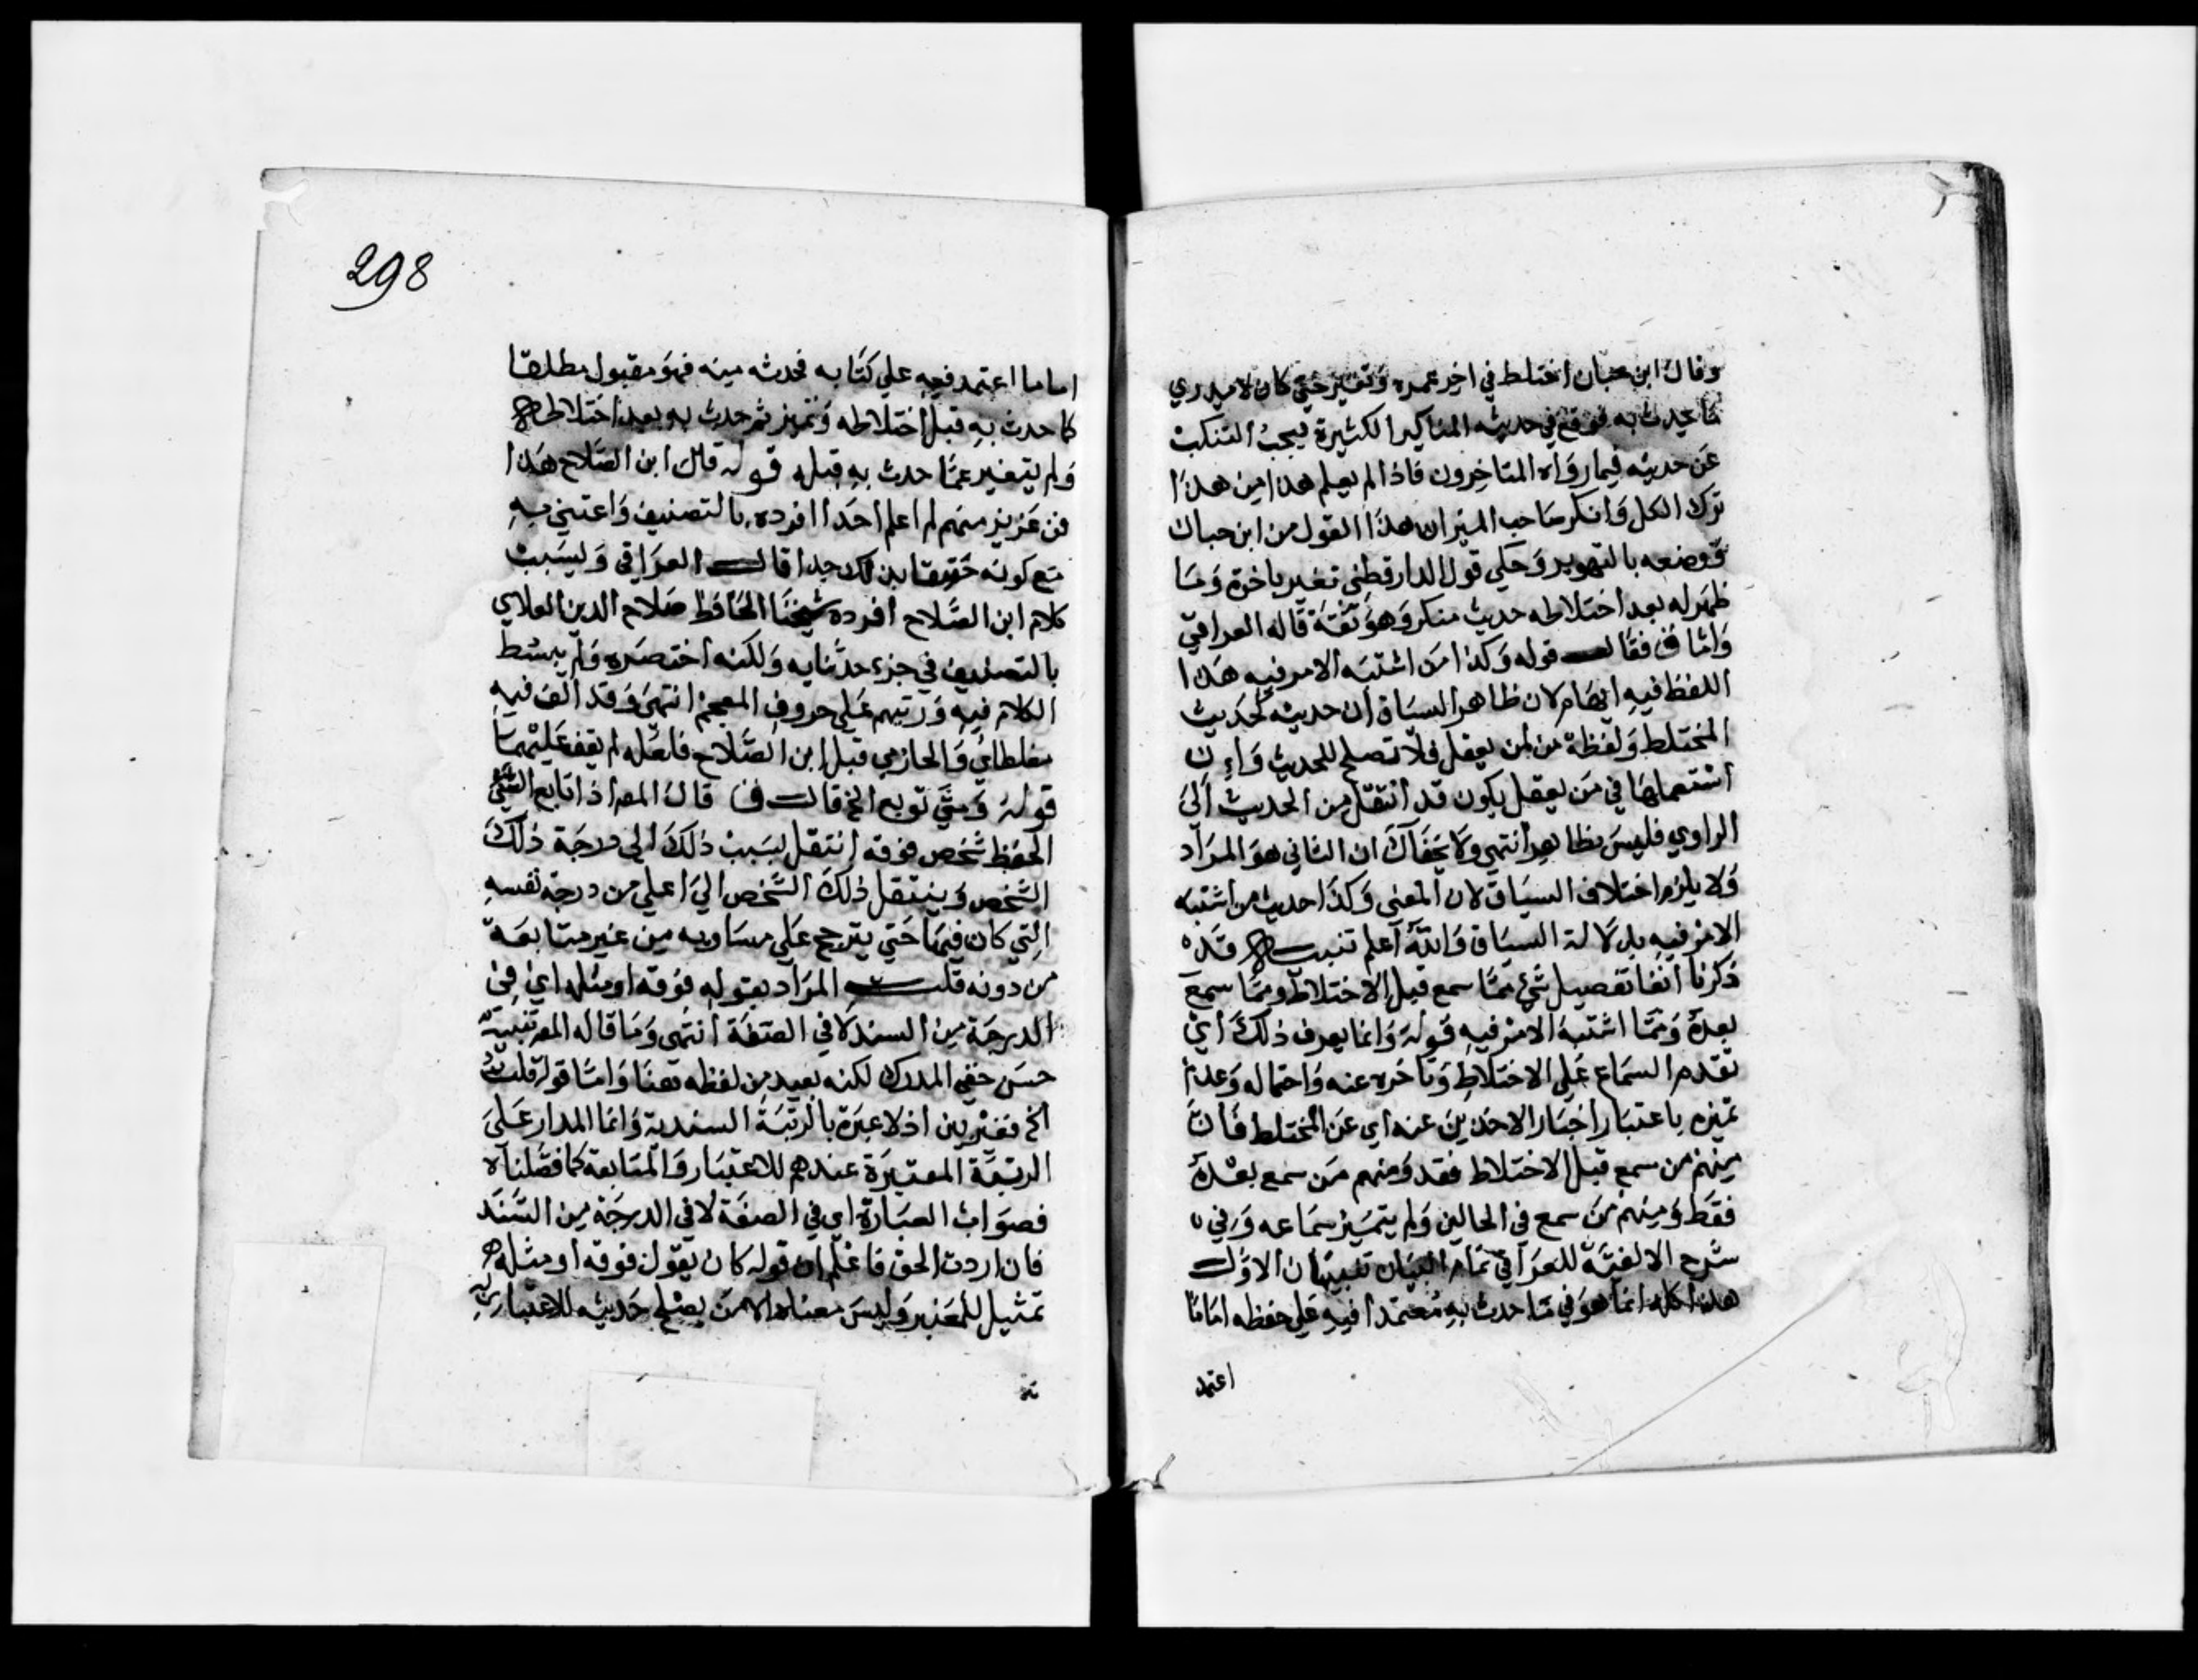 وقال ابن حبان اختلط في اخر عمره وتغير حتي كان لا يدري
ما يحدث به فوقع في حديثه المناكير الكثيرة فيجب التنكب
عن حديثه فيما رواه المتاخرون فاذا لم يعلم هذا من هذا
ترك الكل وانكر صاحب الميزان هذا القول من ابن حبان
ووضعه بالتهوير وحكي قول الدارقطني تغير باخرة وما
ظهر له بعد اختلاطه حديث منكر وهو ثقة قاله العراقي
واما ق فقال قوله وكذا من اشتبه الامر فيه هذا
اللفظ فيه ايهام لان ظاهر السياق ان حديثه كحديث
المختلط ولفظة من لمن يعقل فلا تصلح للحديث وان
استعملها في من يعقل يكون قد انتقل من الحديث الى
الراوي فليس بظاهر انتهي ولا يخفاك ان الثاني هو المراد
ولا يلزم اختلاف السياق لان المعنى وكذا حديث من اشتبه
الامر فيه بدلالة السياق والله اعلم تنبيه قد
ذكرنا انفا تفصيل شيء مما سمع قبل الاختلاط ومما سمع
بعده ومما اشتبه الامر فيه قوله وانما يعرف ذلك اي
تقدم السماع على الاختلاط وتاخره عنه واحتماله وعدم
تميزه باعتبار اخبار الاخذين عنه اي عن المختلط فان
منهم من سمع قبل الاختلاط فقد ومنهم من سمع بعده
فقط ومنهم من سمع في الحالين ولم يتميز سماعه وفي
شرح الالفية للعراقي تمام البيان تنبيهان الاول
هذا كله انما هو في ما حدث به معتمدا فيه علي حفظه اماما
اعتمد
298
اماما اعتمد فيه علي كتابه فحدث منه فهو مقبول مطلقا
كما حدث به قبل اختلاطه وتميز ثم حدث به بعد اختلاطه
ولم يتغير عما حدث به قبله قوله قال ابن الصلاح هذا
فن عزيز مهم لم اعلم احدا افرده بالتصنيف واعتني به
مع كونه حقيقا بذلك جدا قال العراقي وبسبب
كلام ابن الصلاح افرده شيخنا الحافظ صلاح الدين العلاي
بالتصنيف في جزء حدثنا به ولكنه اختصره ولم يبسط
الكلام فيه ورتبهم على حروف المعجم انتهى وقد الف فيه
مغلطاي والحازمي قبل ابن الصلاح فلعله لم يقف عليهما
قوله ومتي توبع الخ قال ق قال المص اذا تابع السيئ
الحفظ شخص فوقه انتقل بسبب ذلك الى درجة ذلك
الشخص وينتقل ذلك الشخص الي اعلي من درجة نفسه
التي كان فيها حتي يترجح على مساويه من غير متابعة
من دونه قلت المراد بقوله فوقه او مثله اي في
الدرجة من السند لا في الصفة انتهى وما قاله المص تنبيه
حسن خفي المدرك لكنه بعيد من لفظه هنا واما قوله قلت
الخ فغير بين اذ لا عبرة بالرتبة السندية وانما المدار على
الرتبة المعتبرة عندهم للاعتبار والمتابعة كما فصلناه
فصواب العبارة اي في الصفة لا في الدرجة من السند
فان اردت الحق فاعلم ان قوله كان يقول فوقه او مثله
تمثيل للمعتبر وليس معناه الا من يصلح حديثه للاعتبار به